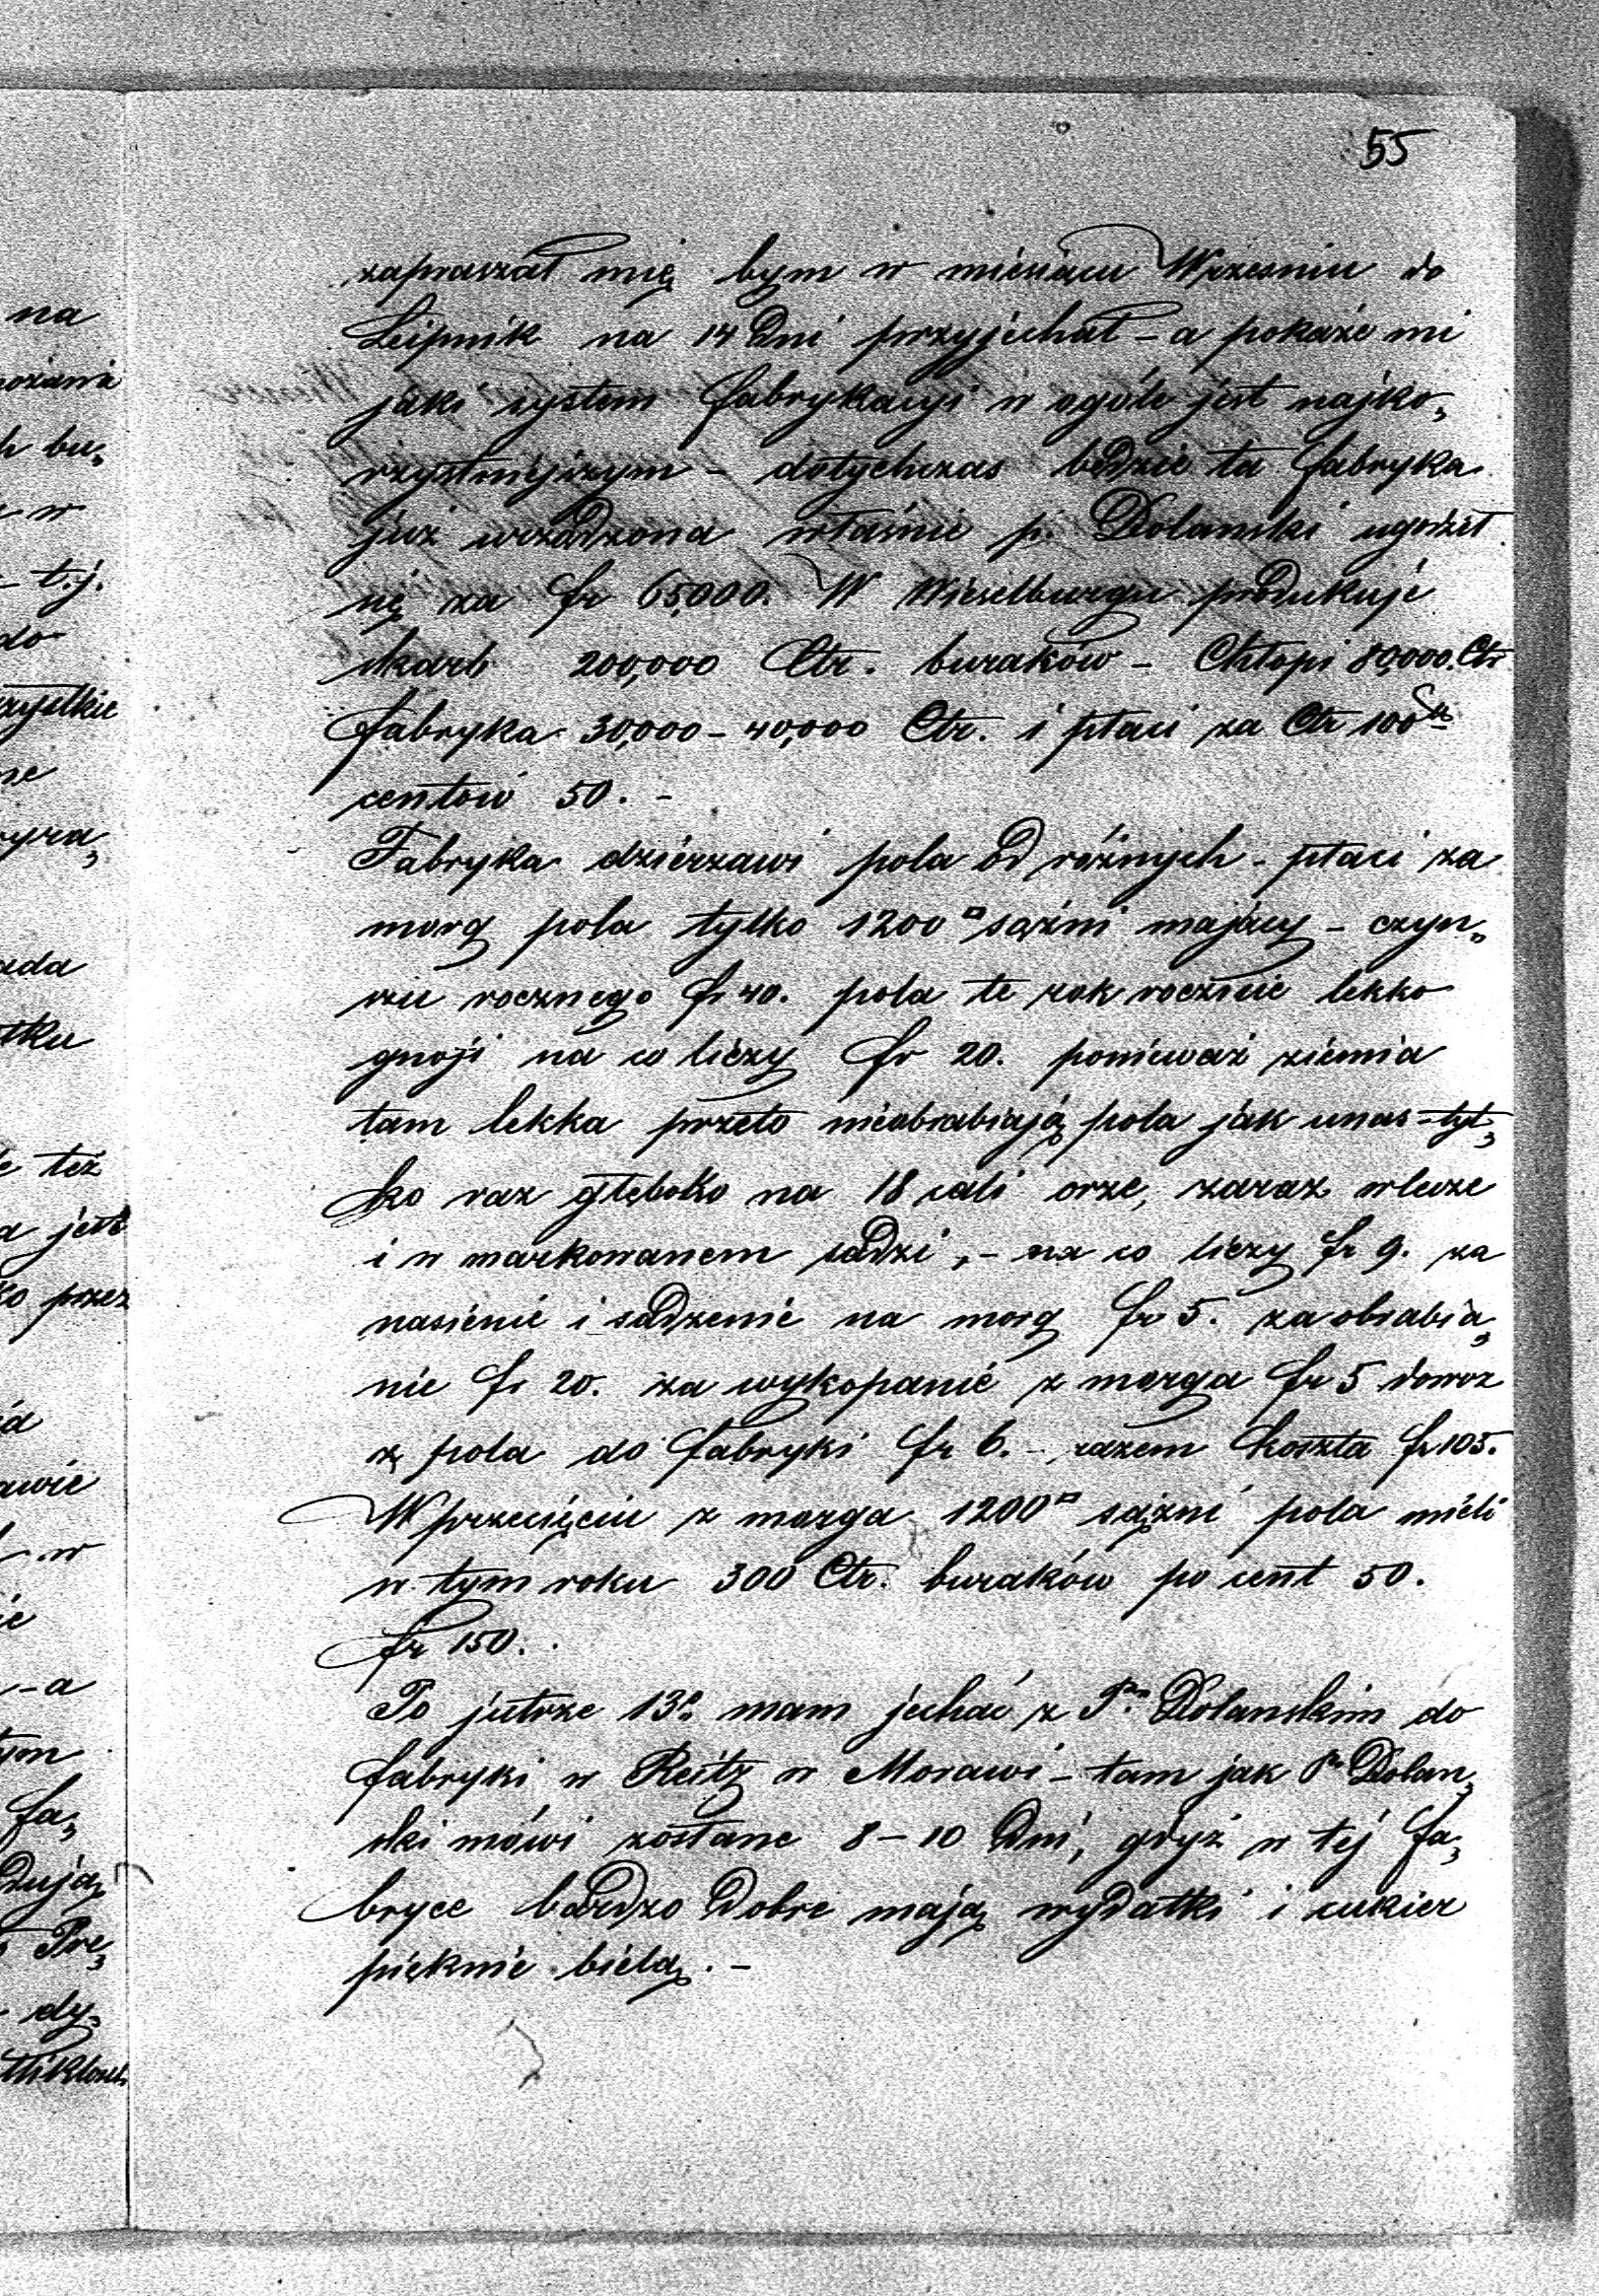 55
zapraszał mię bym w miesiącu Wrzesniu do
Leipnik na 14 Dni przyjechał – a pokaże mi
jaki system fabrykacyi w ogóle jest najko„
rzystniejszym – dotychczas będzie ta fabryka
już urządzona właśnie p. Dolanski ugodził
się za fr 65,000. W Wieselburgu produkuje
skarb 200,000 Ctr. buraków – Chłopi 80,000. Ctr
fabryka 30,000 – 40,000 Ctr. i płaci za Ctr 100
centów 50. –
Fabryka dzierzawi pola od różnych – płaci za
morg pola tylko 1200 □ sążni mający – czyn„
szu rocznego fr 40. pola te rok rocznie lekko
gnoji na co liczy fr 20. ponieważ ziemia
tam lekka przeto nieobrabiają pola jak unas – tyl„
ko raz głęboko na 18 cali orze, zaraz wlecze
i w markowanem sadzi, – na co liczy fr 9. za
nasienie i sadzenie na morg fr 5. za obrabia„
nie fr 20. za wykopanie z morga fr 5 dowoz
z pola do fabryki fr 6. – razem koszta fr 105.
W przecięciu z morga 1200 □ sążni pola mieli
w tym roku 300 Ctr. buraków po cent 50.
fr 150.
Po jutrze 13º mam jechać z Pm Dolanskim do
fabryki w Reitz w Morawi – tam jak Pn Dolan„
ski mówi zostane 8 – 10 Dni, gdyż w téj fa„
bryce bardzo Dobre mają wydatki i cukier
pięknie bielą. –
na
h bu„
w
t.j.
do
wszystkie
ne
ada
tku
też
a jest
ko przez
awie
w
ie
– a
tym
fa„
dują
Pre„
dy„